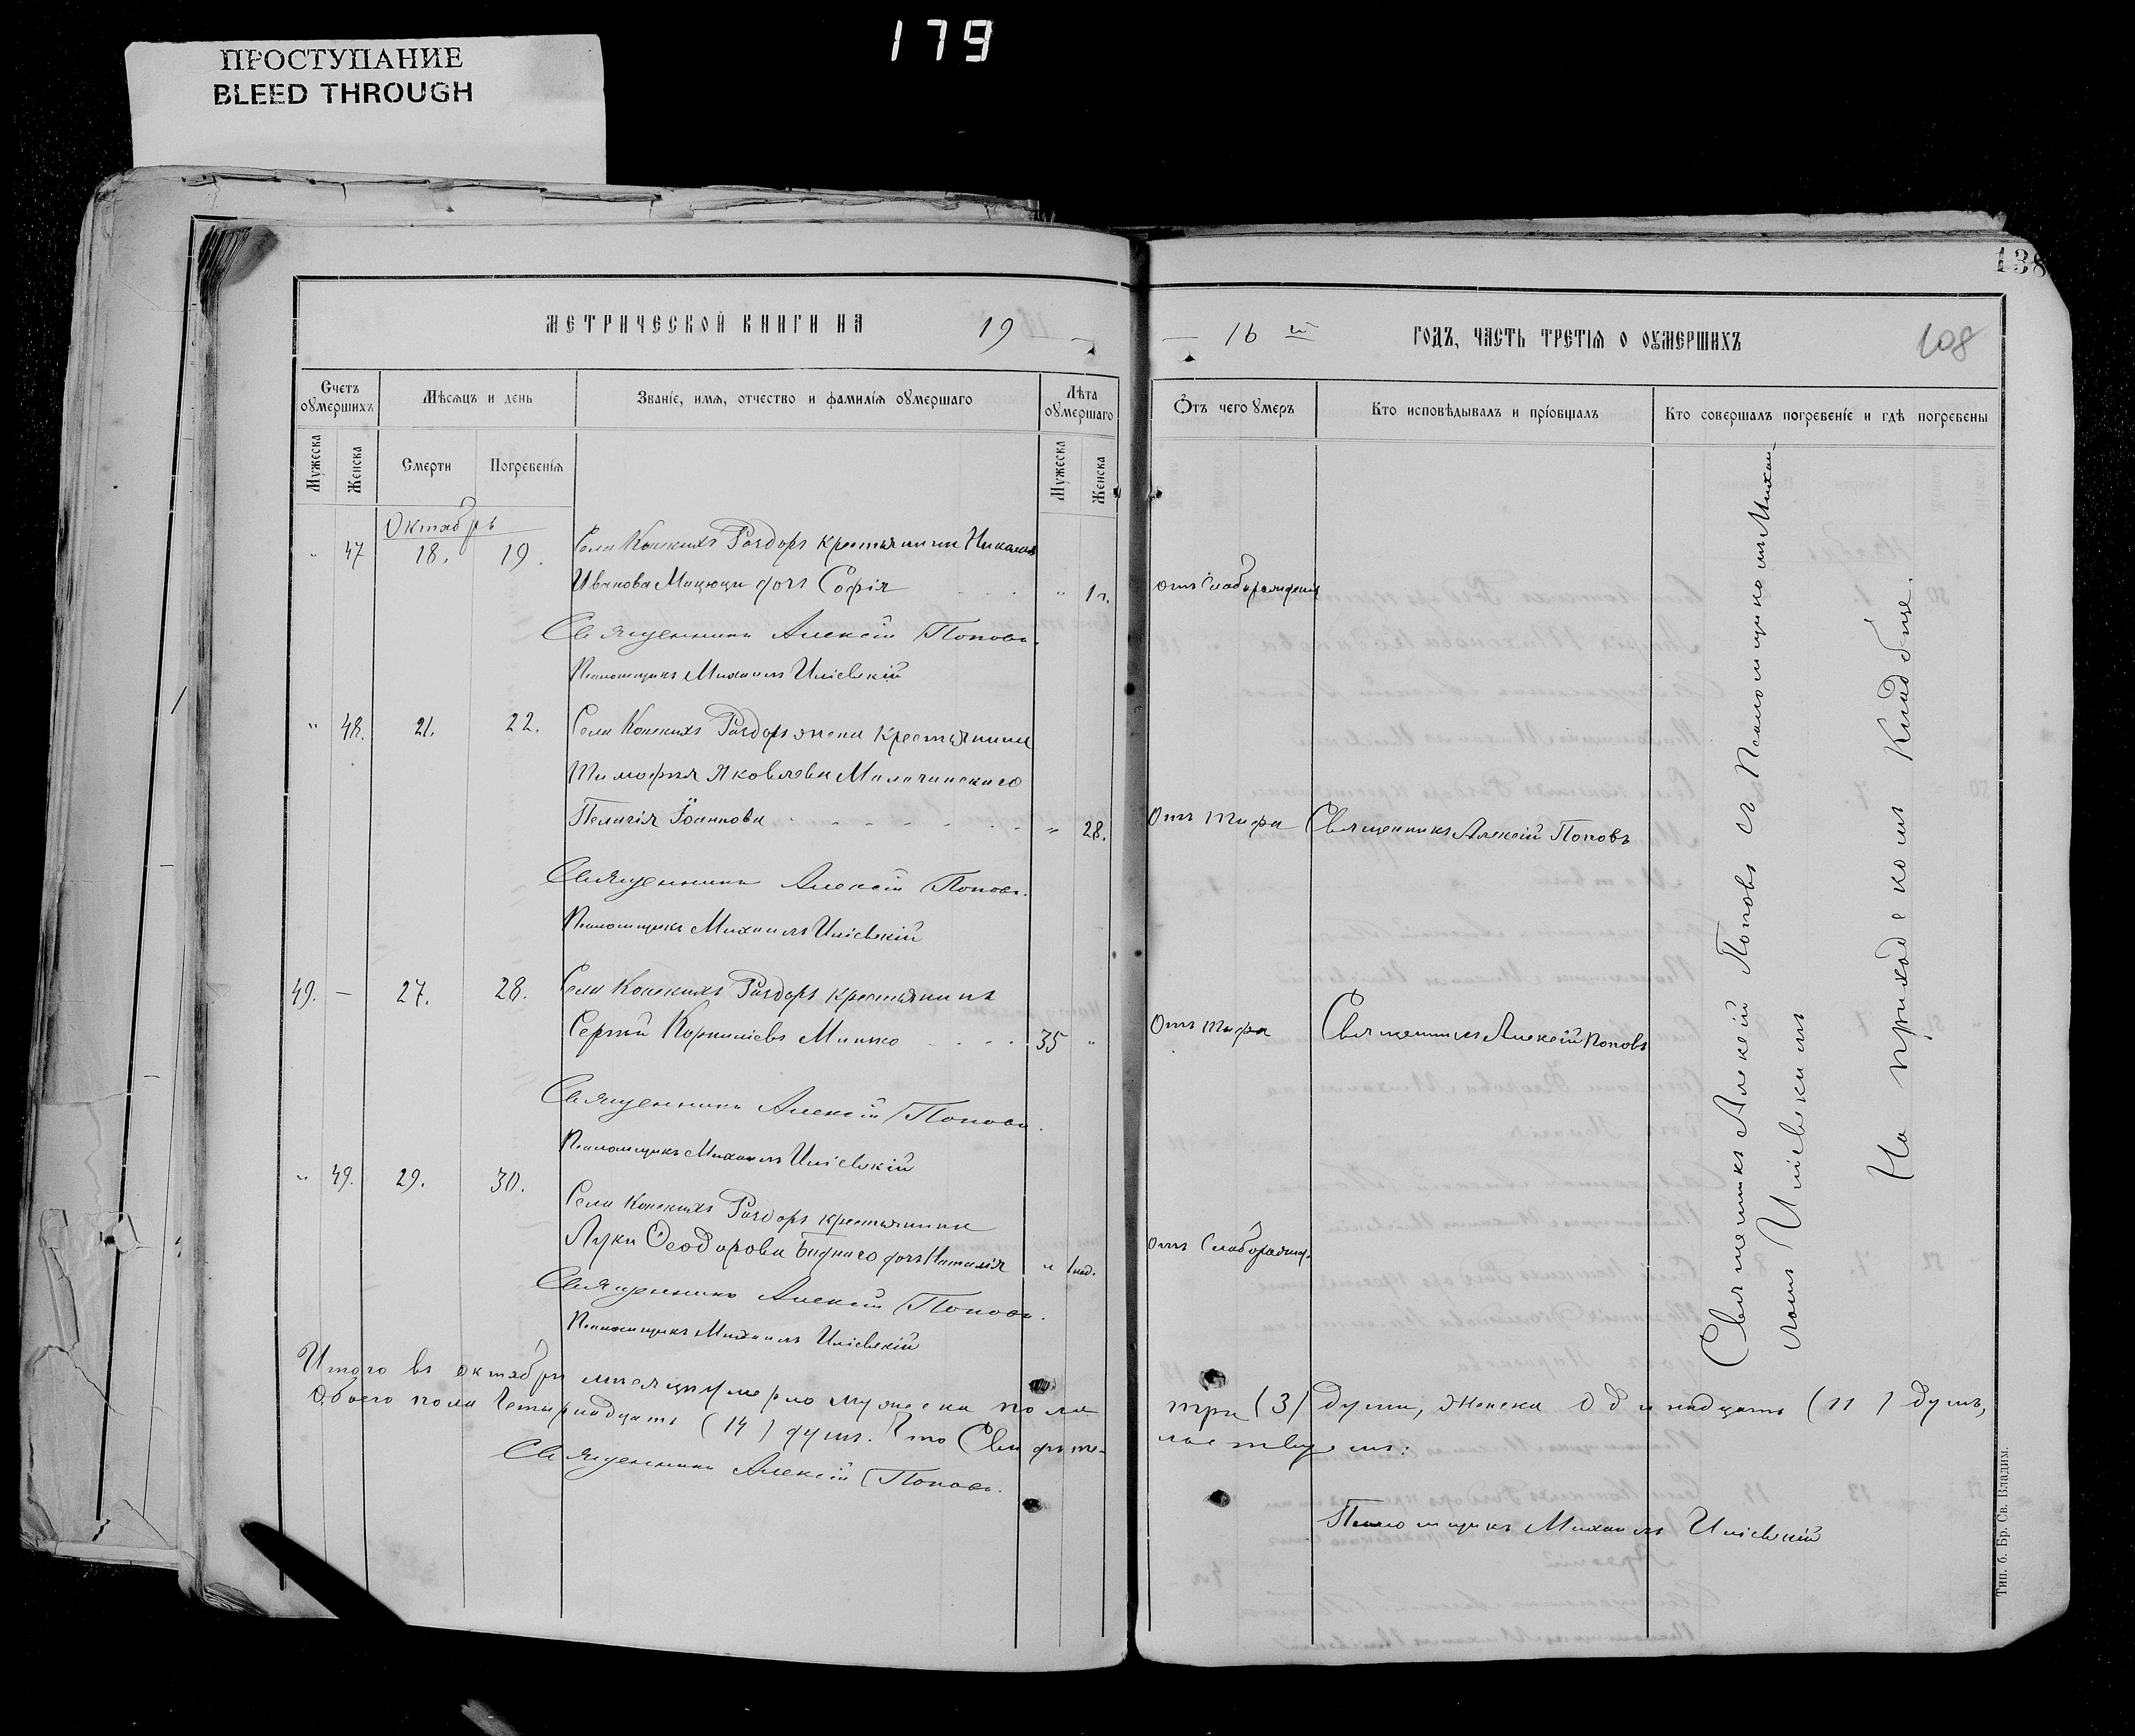 179
ПРОСТУПАНИЕ
BLEED THROUGH
138
МЕТРИЧЕСКОЙ КНИГИ НА 19
16 й ГОДЪ, ЧАСТЬ ТРЕТІЯ О ОУМЕРШИХЪ
108
Счетъ оумершихъ
Мѣсяцъ и день
Званіе, имя, отчество и фамилія оумершаго
Лѣта оумершаго
Отъ чего умеръ
Кто исповѣдывалъ и пріобщалъ
Кто совершалъ погребеніе и гдѣ погребены
Мужеска
Женска
Смерти
Погребенія
Мужеска
Женска
Октябрь
" 47 18. 19. Села Конскихъ Раздоръ крестьянина
Иванова дочь Софія " 1 г. отъ слаборожденія
Священникъ Алексій Поповъ.
Псаломщикъ Михаилъ Иліевскій
" 48. 21. 22. Села Конскихъ Раздоръ жена крестьянина
Тимофея Яковлева
Пелагія Іоаннова " 28. Отъ тифа Священникъ Алексій Поповъ
Священникъ Алексій Поповъ.
Псаломщикъ Михаилъ Иліевскій
49. — 27. 28. Села Конскихъ Раздоръ крестьянинъ
Сергій Корниліевъ Минко 35 " Отъ тифа Священникъ Алексій Поповъ
Священникъ Алексій Поповъ.
Псаломщикъ Михаилъ Иліевскій
" 49. 29. 30. Села Конскихъ Раздоръ крестьянина
Луки Ѳеодорова Бѣднаго дочь Наталія " 1 нед. отъ слаборожд.
Священникъ Алексій Поповъ.
Псаломщикъ Михаилъ Иліевскій
Священникъ Алексій Поповъ съ Псаломщикомъ Михаи-
ломъ Иліевскимъ
На приходскомъ кладбищѣ.
Итого въ октябрѣ мѣсяцѣ умерло мужеска пола три (3) души, женска одинадцать (11) душъ,
Обоего пола четырнадцать (14) душъ. Что свидѣтельствуемъ:
Священникъ Алексій Поповъ.
Псаломщикъ Михаилъ Иліевскій
Тип. б. Бр. Св. Владим.